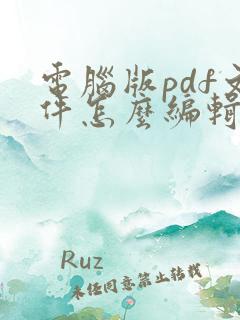 電腦版pdf文
件怎麼編輯
Ruz
未經同意禁止轉載